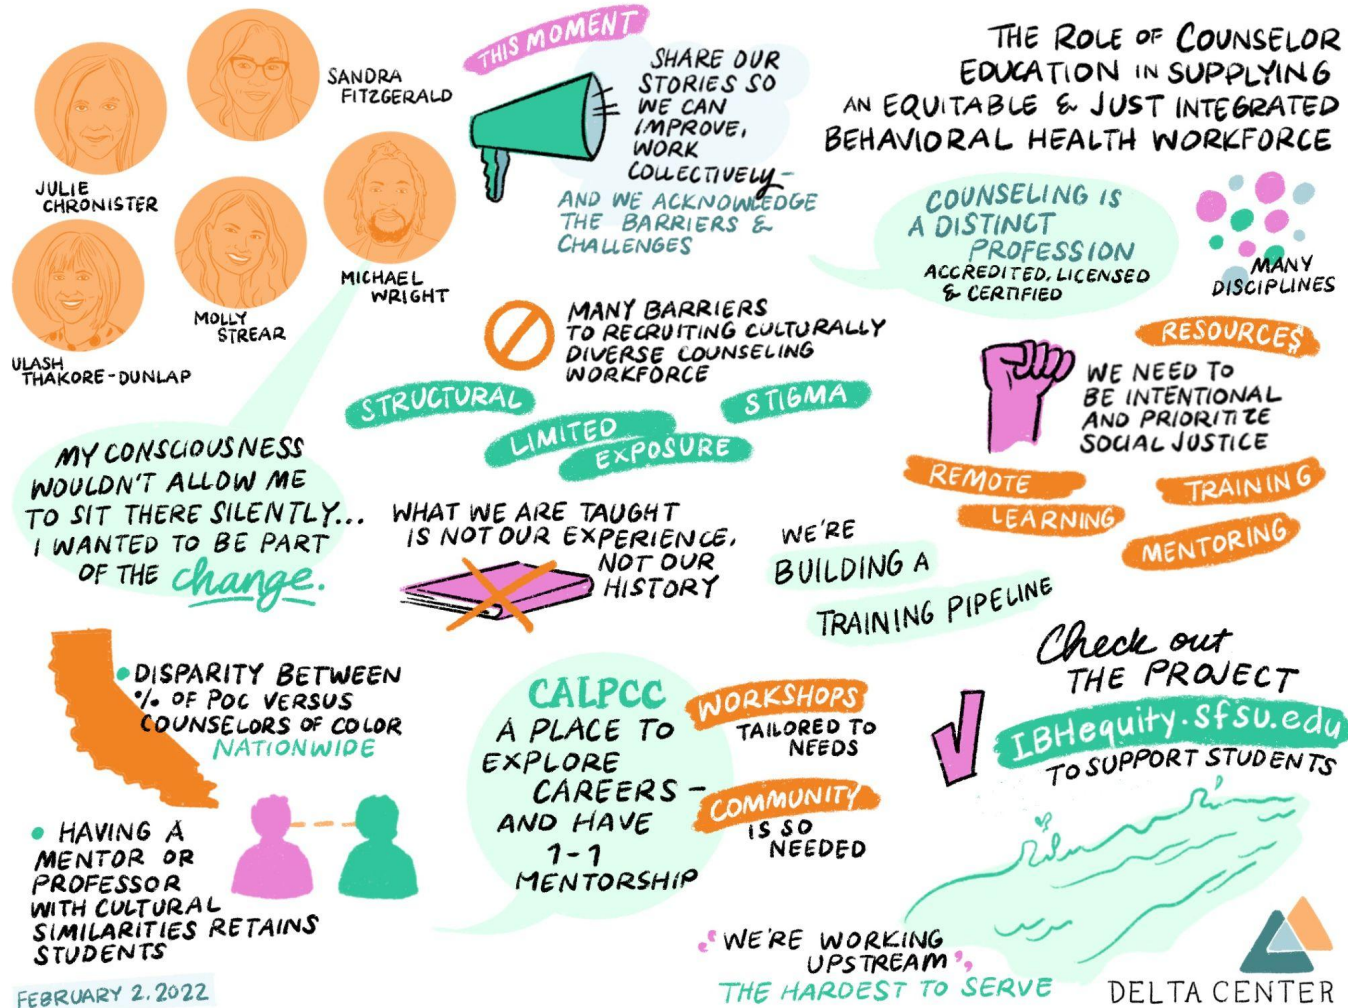 THE ROLE OF COUNSELOR
EDUCATION IN SUPPLYING
AN EQUITABLE & JUST INTEGRATED
BEHAVIORAL HEALTH WORKFORCE
SANDRA
FITZGERALD
JULIE
CHRONISTER
MICHAEL
WRIGHT
MOLLY
STREAR
ULASH
THAKORE-DUNLAP
THIS MOMENT
SHARE OUR
STORIES SO
WE CAN
IMPROVE,
WORK
COLLECTIVELY-
AND WE ACKNOWLEDGE
THE BARRIERS &
CHALLENGES
COUNSELING IS
A DISTINCT
PROFESSION
ACCREDITED, LICENSED
& CERTIFIED
MANY
DISCIPLINES
MANY BARRIERS
TO RECRUITING CULTURALLY
DIVERSE COUNSELING
WORKFORCE
STRUCTURAL
LIMITED
EXPOSURE
STIGMA
RESOURCE$
WE NEED TO
BE INTENTIONAL
AND PRIORITIZE
SOCIAL JUSTICE
REMOTE
LEARNING
TRAINING
MENTORING
MY CONSCIOUSNESS
WOULDN'T ALLOW ME
TO SIT THERE SILENTLY...
I WANTED TO BE PART
OF THE change.
WHAT WE ARE TAUGHT
IS NOT OUR EXPERIENCE,
NOT OUR
HISTORY
WE'RE
BUILDING A
TRAINING PIPELINE
DISPARITY BETWEEN
% OF POC VERSUS
COUNSELORS OF COLOR
NATIONWIDE
HAVING A
MENTOR OR
PROFESSOR
WITH CULTURAL
SIMILARITIES RETAINS
STUDENTS
CALPCC
A PLACE TO
EXPLORE
CAREERS -
AND HAVE
1-1
MENTORSHIP
WORKSHOPS
TAILORED TO
NEEDS
COMMUNITY
IS SO
NEEDED
Check out
THE PROJECT
IBHequity.sfsu.edu
TO SUPPORT STUDENTS
"WE'RE WORKING
UPSTREAM"
THE HARDEST TO SERVE
DELTA CENTER
FEBRUARY 2. 2022